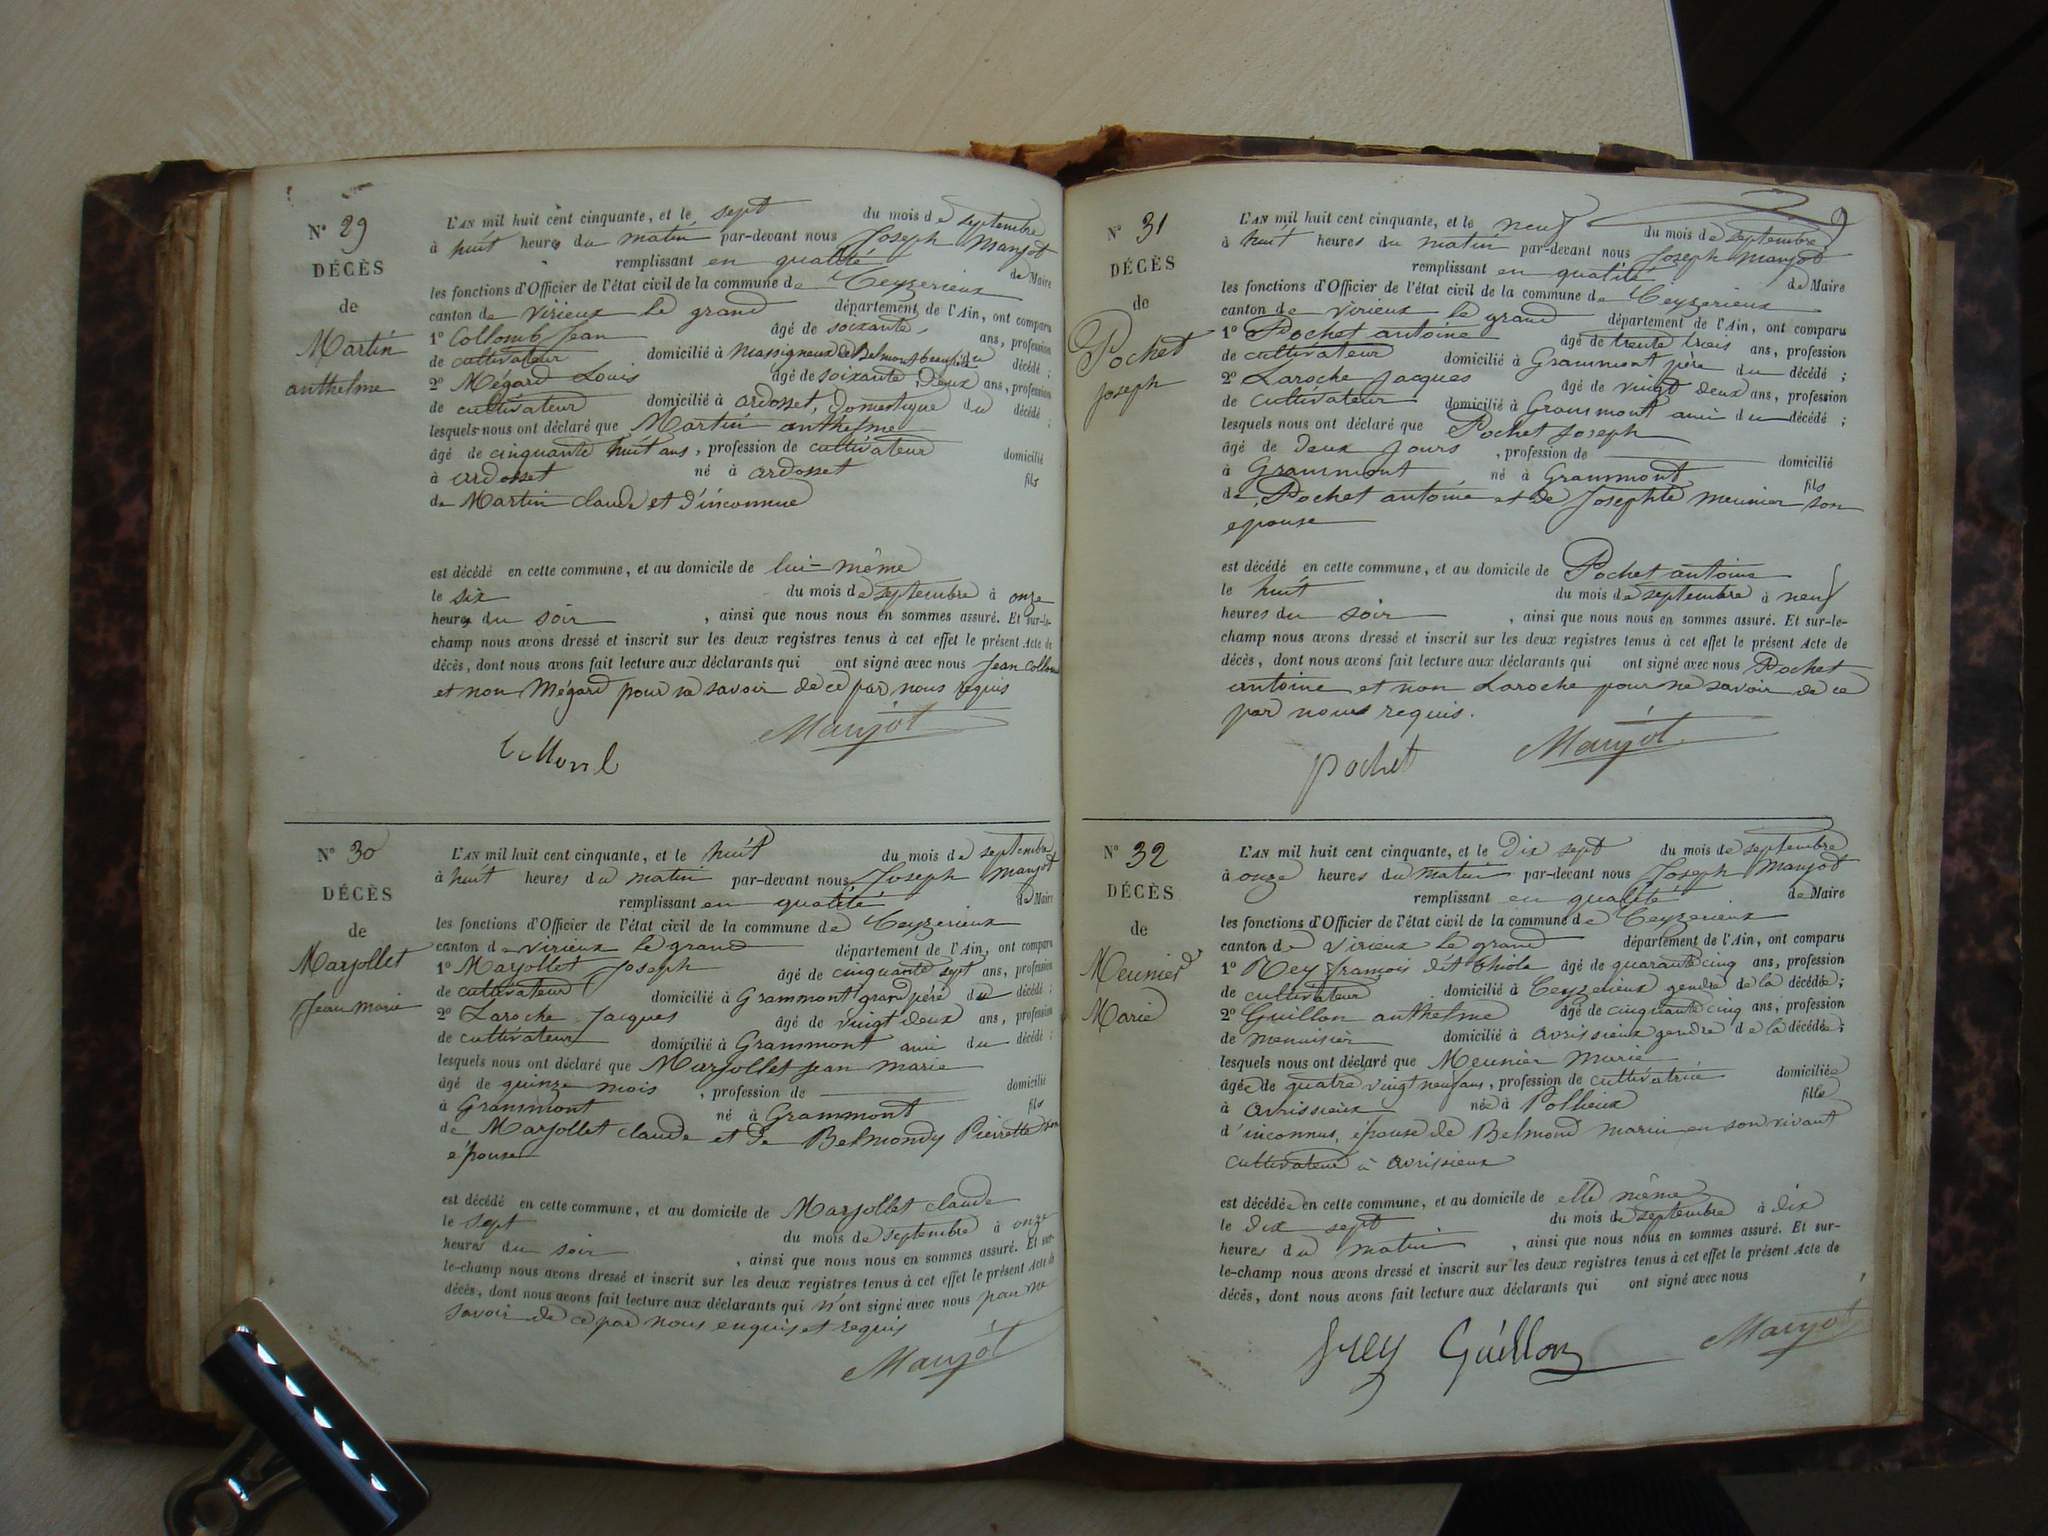 N° 29
DÉCÈS
de
Martin
anthelme
L'AN mil huit cent cinquante, et le sept du mois de septembre
à huit heures du matin par-devant nous Joseph Manjot
remplissant en qualité de Maire
les fonctions d'Officier de l'état civil de la commune de Ceyzerieux
canton de virieux le grand département de l'Ain, ont comparu
1° Collomb Jean âgé de soixante ans, profession
de cultivateur domicilié à Massigneux de Belmont beaufrère du décédé ;
2° Mégard Louis âgé de soixante deux ans, profession
de cultivateur domicilié à ardosset, domestique du décédé ;
lesquels nous ont déclaré que Martin anthelme
âgé de cinquante huit ans, profession de cultivateur domicilié
à ardosset né à ardosset fils
de Martin claude et d'inconnue
est décédé en cette commune, et au domicile de lui-même
le six du mois de septembre à onze
heures du soir, ainsi que nous nous en sommes assuré. Et sur-le-
champ nous avons dressé et inscrit sur les deux registres tenus à cet effet le présent Acte de
décès, dont nous avons fait lecture aux déclarants qui ont signé avec nous Jean Collomb
et non Mégard pour ne savoir de ce par nous requis
Manjot
Collomb
N° 30
DÉCÈS
de
Marjollet
Jean Marie
L'AN mil huit cent cinquante, et le huit du mois de septembre
à huit heures du matin par-devant nous Joseph Manjot
remplissant en qualité de Maire
les fonctions d'Officier de l'état civil de la commune de Ceyzerieux
canton de virieux le grand département de l'Ain, ont comparu
1° Marjollet Joseph âgé de cinquante sept ans, profession
de cultivateur domicilié à Grammont grand père du décédé ;
2° Laroche Jacques âgé de vingt deux ans, profession
de cultivateur domicilié à Grammont ami du décédé ;
lesquels nous ont déclaré que Marjollet jean marie
âgé de quinze mois, profession de domicilié
à Grammont né à Grammont fils
de Marjollet claude et de Belmondy Pierrette son
épouse
est décédé en cette commune, et au domicile de Marjollet claude
le sept du mois de septembre à onze
heures du soir, ainsi que nous nous en sommes assuré. Et sur-
le-champ nous avons dressé et inscrit sur les deux registres tenus à cet effet le présent Acte de
décès, dont nous avons fait lecture aux déclarants qui n'ont signé avec nous pour ne
savoir de ce par nous enquis et requis
Manjot
N° 31
DÉCÈS
de
Pochet
joseph
L'AN mil huit cent cinquante, et le neuf du mois de septembre
à huit heures du matin par-devant nous Joseph Manjot
remplissant en qualité de Maire
les fonctions d'Officier de l'état civil de la commune de Ceyzerieux
canton de virieux le grand département de l'Ain, ont comparu
1° Pochet antoine âgé de trente trois ans, profession
de cultivateur domicilié à Grammont père du décédé ;
2° Laroche Jacques âgé de vingt deux ans, profession
de cultivateur domicilié à Grammont ami du décédé ;
lesquels nous ont déclaré que Pochet Joseph
âgé de deux jours, profession de domicilié
à Grammont né à Grammont fils
de Pochet antoine et de Josephte meunier son
epouse
est décédé en cette commune, et au domicile de Pochet antoine
le huit du mois de septembre à neuf
heures du soir, ainsi que nous nous en sommes assuré. Et sur-le-
champ nous avons dressé et inscrit sur les deux registres tenus à cet effet le présent Acte de
décès, dont nous avons fait lecture aux déclarants qui ont signé avec nous Pochet
antoine et non Laroche pour ne savoir de ce
par nous requis.
Manjot
pochet
N° 32
DÉCÈS
de
Meunier
Marie
L'AN mil huit cent cinquante, et le dix sept du mois de septembre
à onze heures du matin par-devant nous Joseph Manjot
remplissant en qualité de Maire
les fonctions d'Officier de l'état civil de la commune de Ceyzerieux
canton de virieux le grand département de l'Ain, ont comparu
1° Rey françois dit âgé de quarante cinq ans, profession
de cultivateur domicilié à Ceyzerieux gendre de la décédée ;
2° Guillon anthelme âgé de cinquante cinq ans, profession
de menuisier domicilié à avrissieux gendre de la décédée ;
lesquels nous ont déclaré que Meunier marie
âgée de quatre vingt neuf ans, profession de cultivatrice domiciliée
à avrissieux née à Pollieux fille
d'inconnus, épouse de Belmond marin en son vivant
cultivateur à avrissieux
est décédée en cette commune, et au domicile de elle même
le dix sept du mois de septembre à dix
heures du matin, ainsi que nous nous en sommes assuré. Et sur-
le-champ nous avons dressé et inscrit sur les deux registres tenus à cet effet le présent Acte de
décès, dont nous avons fait lecture aux déclarants qui ont signé avec nous
Manjot
frey Guillon